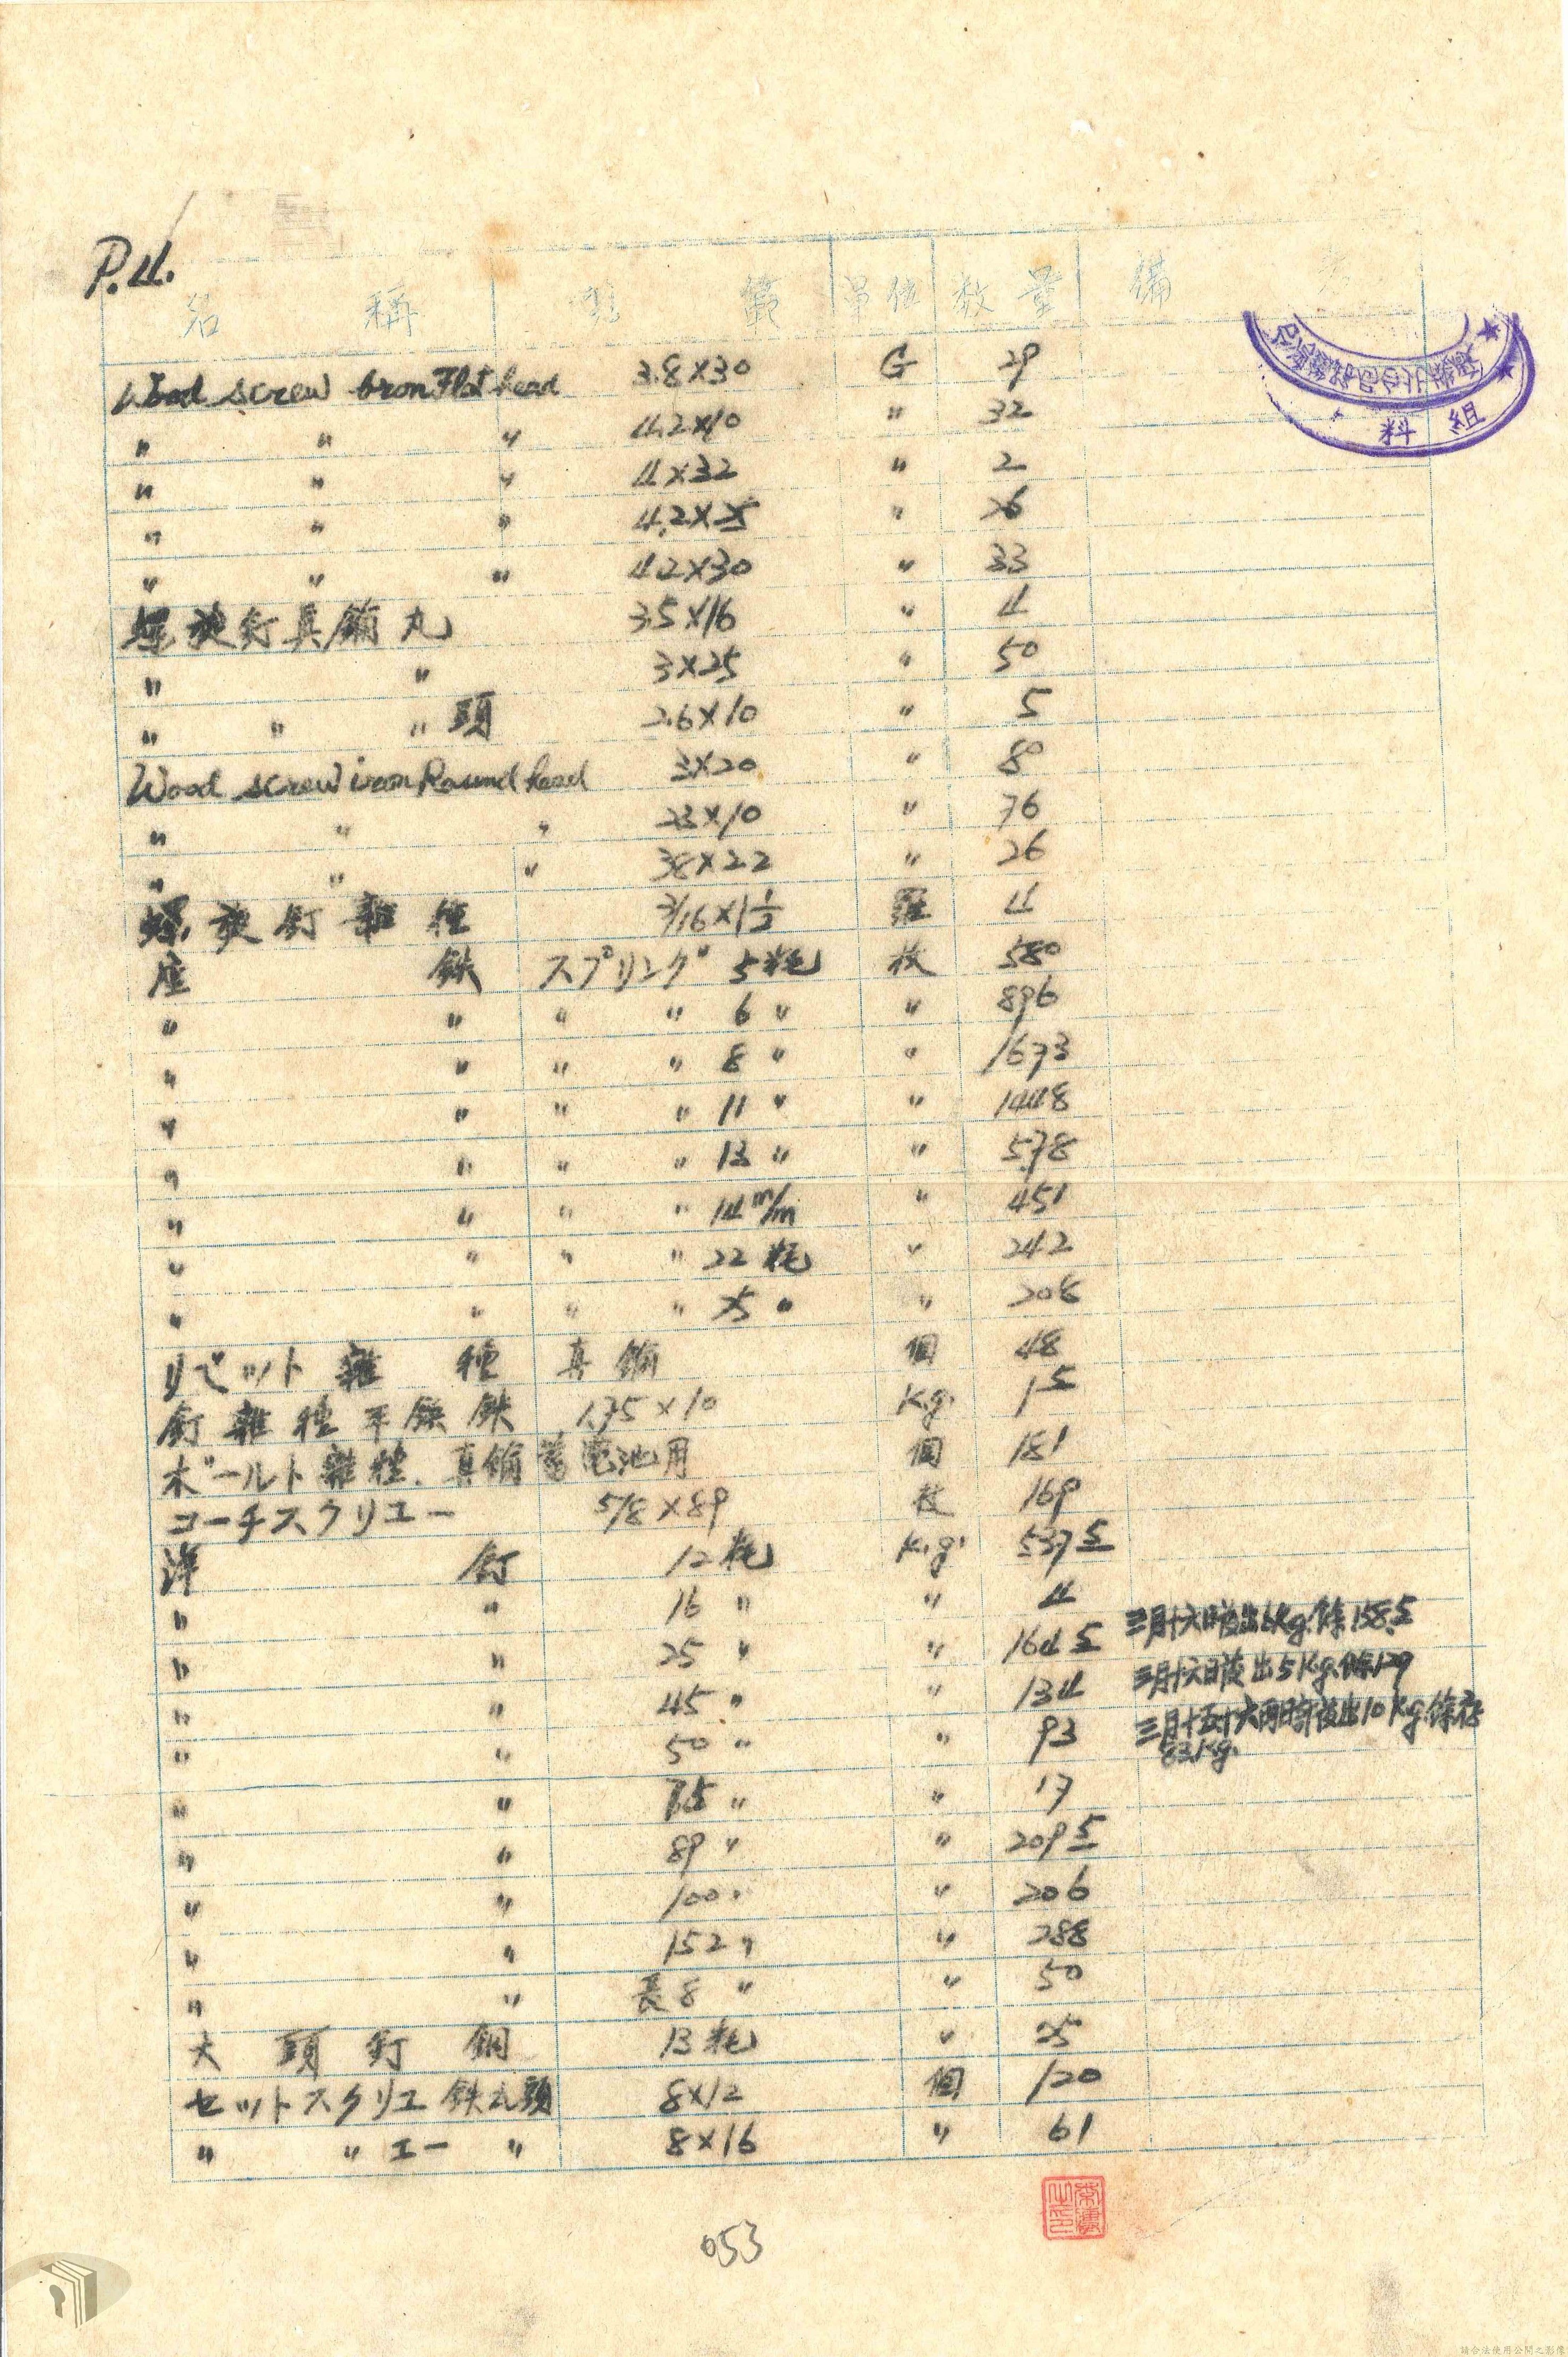 P.4.
名稱 型範 單位 数量 備考
Wood screw bronFlat head 3.8×30 G 29
〃 〃 〃 4.2×10 〃 32
〃 〃 〃 4×32 〃 2
〃 〃 〃 4.2×25 〃 26
〃 〃 〃 4.2×30 〃 33
螺旋釘真鍮丸 3.5×16 〃 4
〃 〃 3×25 〃 50
〃 〃 〃頭 2.6×10 〃 5
Wood screw iron Round head 3×20 〃 80
〃 〃 〃 23×10 〃 76
〃 〃 〃 38×22 〃 26
螺旋釘雜種 3/16×1 1/2 羅 4
座鉄 スプリング 5粍 枚 580
〃 〃 〃 〃 6〃 〃 896
〃 〃 〃 〃 8〃 〃 1673
〃 〃 〃 〃 11〃 〃 1448
〃 〃 〃 〃 13〃 〃 578
〃 〃 〃 〃 14m/m 〃 451
〃 〃 〃 〃 22粍 〃 242
〃 〃 〃 〃 25〃 〃 208
リベット雜種 真鍮 個 48
釘雜種平鋲鉄 1.75×10 Kg. 1 5
ボールト雜種.真鍮蓄電池用 個 181
コーチスクリユー 5/8×89 枚 169
洋釘 12粍 K.g. 537 5
〃 〃 16〃 〃 4
〃 〃 25〃 〃 164 5 三月十六日後出6Kg.餘158.5
〃 〃 45〃 〃 134 三月十六日後出5Kg.餘129
〃 〃 50〃 〃 93 三月十五十六両日後出10Kg.餘存
83Kg.
〃 〃 75〃 〃 17
〃 〃 89〃 〃 209 5
〃 〃 100〃 〃 206
〃 〃 152〃 〃 288
〃 〃 長8〃 〃 50
大頭釘銅 13粍 〃 25
セットスクリエ鉄丸頭 8×12 個 120
〃 〃エー〃 8×16 〃 61
料組
053
請合法使用公開之影像